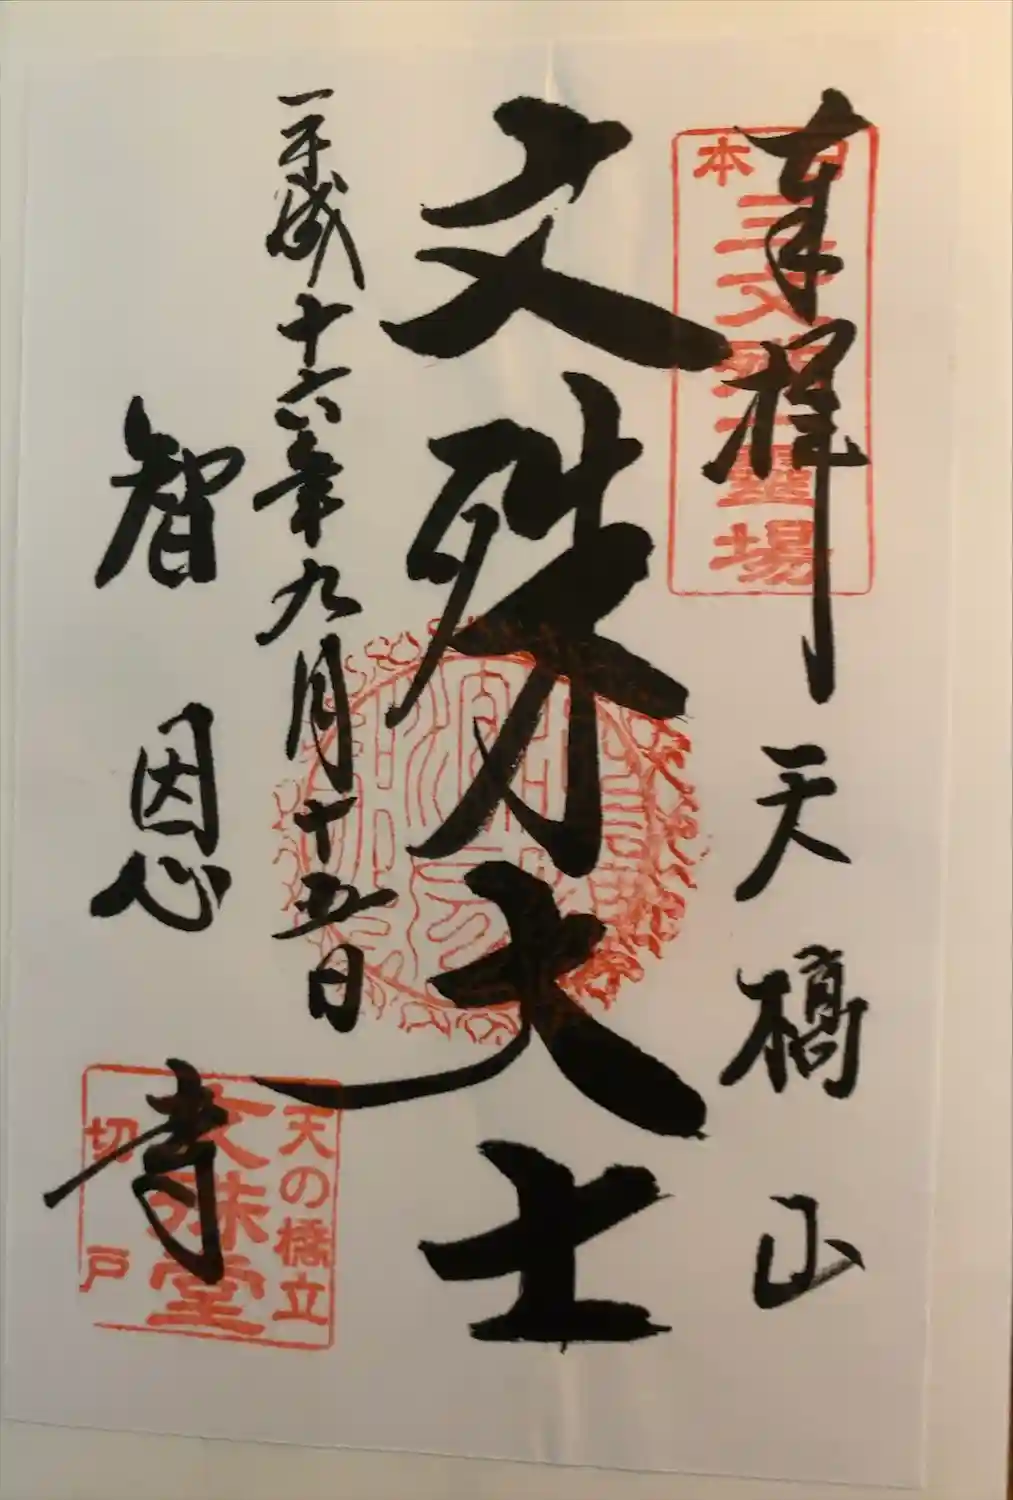 奉拝
天橋山
日本
三文殊霊場
文殊大士
平成十六年九月十五日
智恩寺
天の橋立
文殊堂
切戸